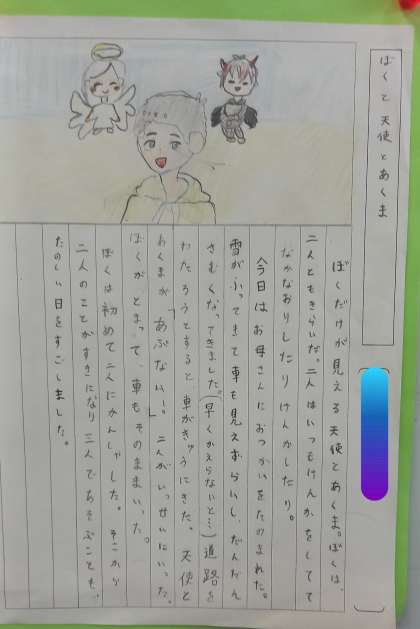 ぼくと天使とあくま
ぼくだけが見える天使とあくま。ぼくは、
二人ともきらいだ。二人はいつもけんかをしてて
なかなおりしたりけんかしたり。
今日はお母さんにおつかいをたのまれた。
雪がふってきて車も見えずらいし、だんだん
さむくなってきました。(早くかえらないと…)道路を
わたろうとすると車がきゅうにきた。天使と
あくまが、「あぶないー。」二人がいっせいにいった。
ぼくがとまって、車もそのままいった。
ぼくは初めて二人にかんしゃした。そこから
二人のことがすきになり三人であそぶことも、
たのしい日をすごしました。